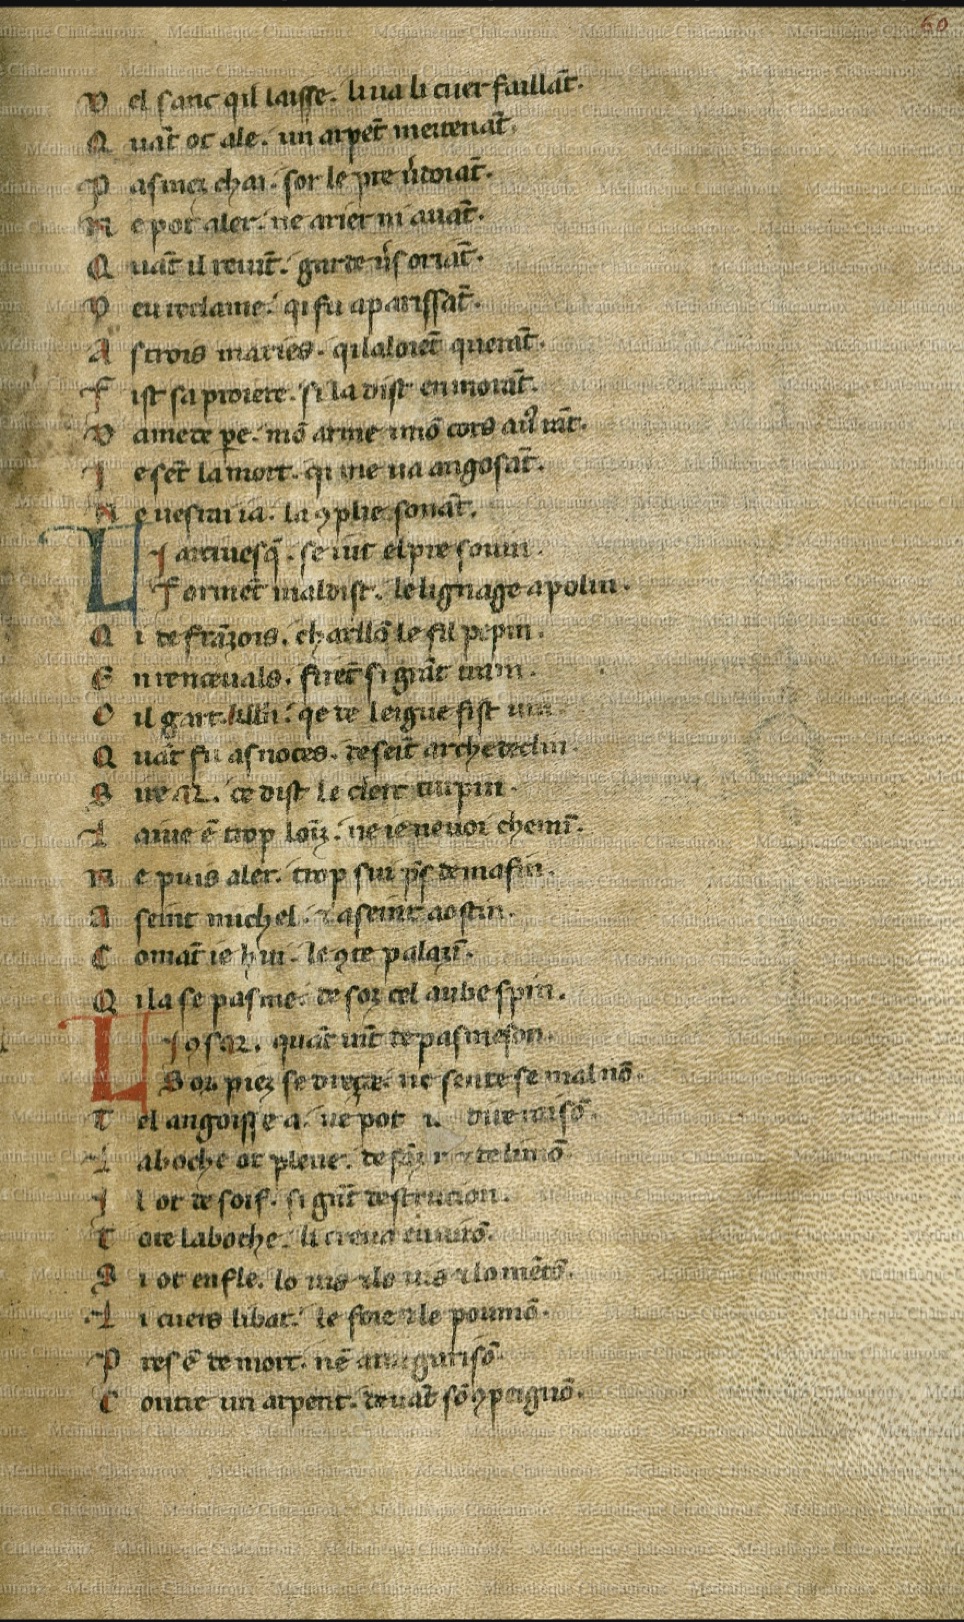 60
D el sanc qil laisse. li ua li cuer faillāt.
Q uāt ot ale. un arpēt meitenāt.
P asmez chai. sor le pre ũdoiāt.
N e pot aler. ne arier ni auāt.
Q uāt il reuīt. garde ũs oriāt.
D eu reclame. qi fu aparissāt.
A s trois maries. qil aloiēt querāt.
F ist sa proiere. si la dist en morāt.
D amede pe. mō arme
I e sēt la mort. qi me ua angosāt.
N e uesrai ia. la ꝯplie sonāt.
L I arciuesq̄. se iut el pre souin.
F ormēt maldist. le lignage apolin.
Q i de frāzois. charllō le fil pepin.
E n renceuals. firēt si grāt train.
C il gart qe de leigue fist uin.
Q uāt fu as noces. de seīt archedeclin.
S ire .R. ce dist le clerc turpin.
L aiue ē trop loīz. ne ie ne uoi chemī.
N e puis aler. trop sui p̄s de ma fin.
A seint michel. ⁊ a seint aostin.
C omāt ie hui. le ꝯte palazī.
Q i la se pasme. de soz cel aube spin.
L I ꝯs .R. quāt uīt de pasmeson.
S or piez se dreçe. ne sente se mal nō.
T el angoisse a. ne pot dire raisō.
L a boche ot pleine. de ⁊ de limō
I l ot de soif. si grāt destrucion.
T ote la boche. li creua enuirō.
S i ot enfle. lo uis ⁊ lo mētō.
L i cuers li bat. le foie ⁊ le poumō.
P res ē de mort. nē aura garisō.
C ontre un arpent. deuāt sō ꝯpeignō.